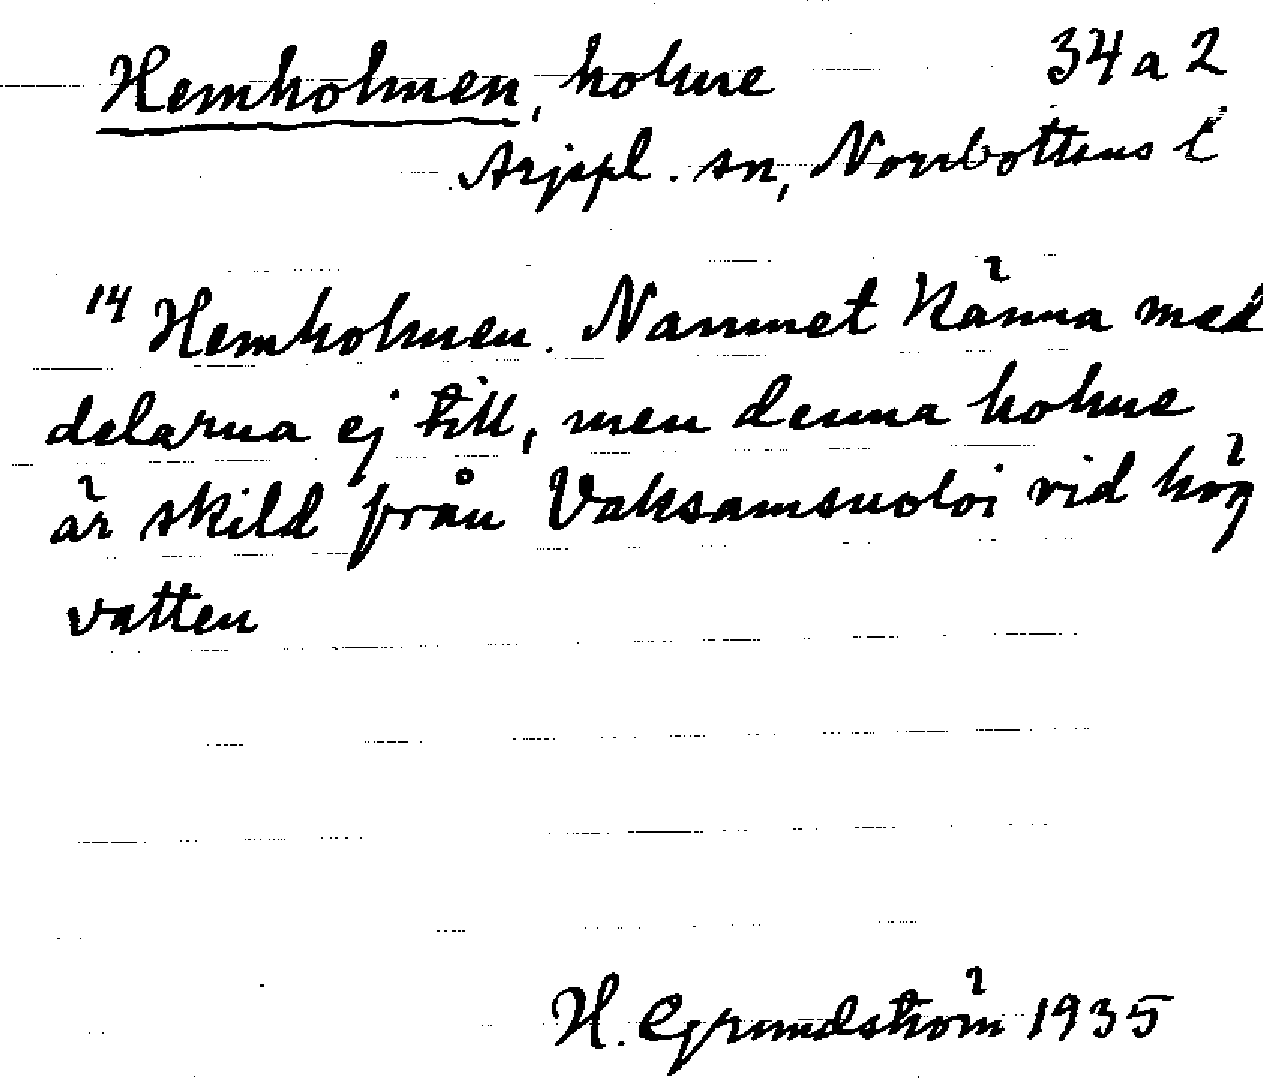 Hemholmen, holme 34 a 2
Arjepl. sn, Norrbottens l
14 Hemholmen. Namnet känna med
delarna ej till, men denna holme
är skild från Vaksamsuoloi vid hög
vatten
H. Grundström 1935